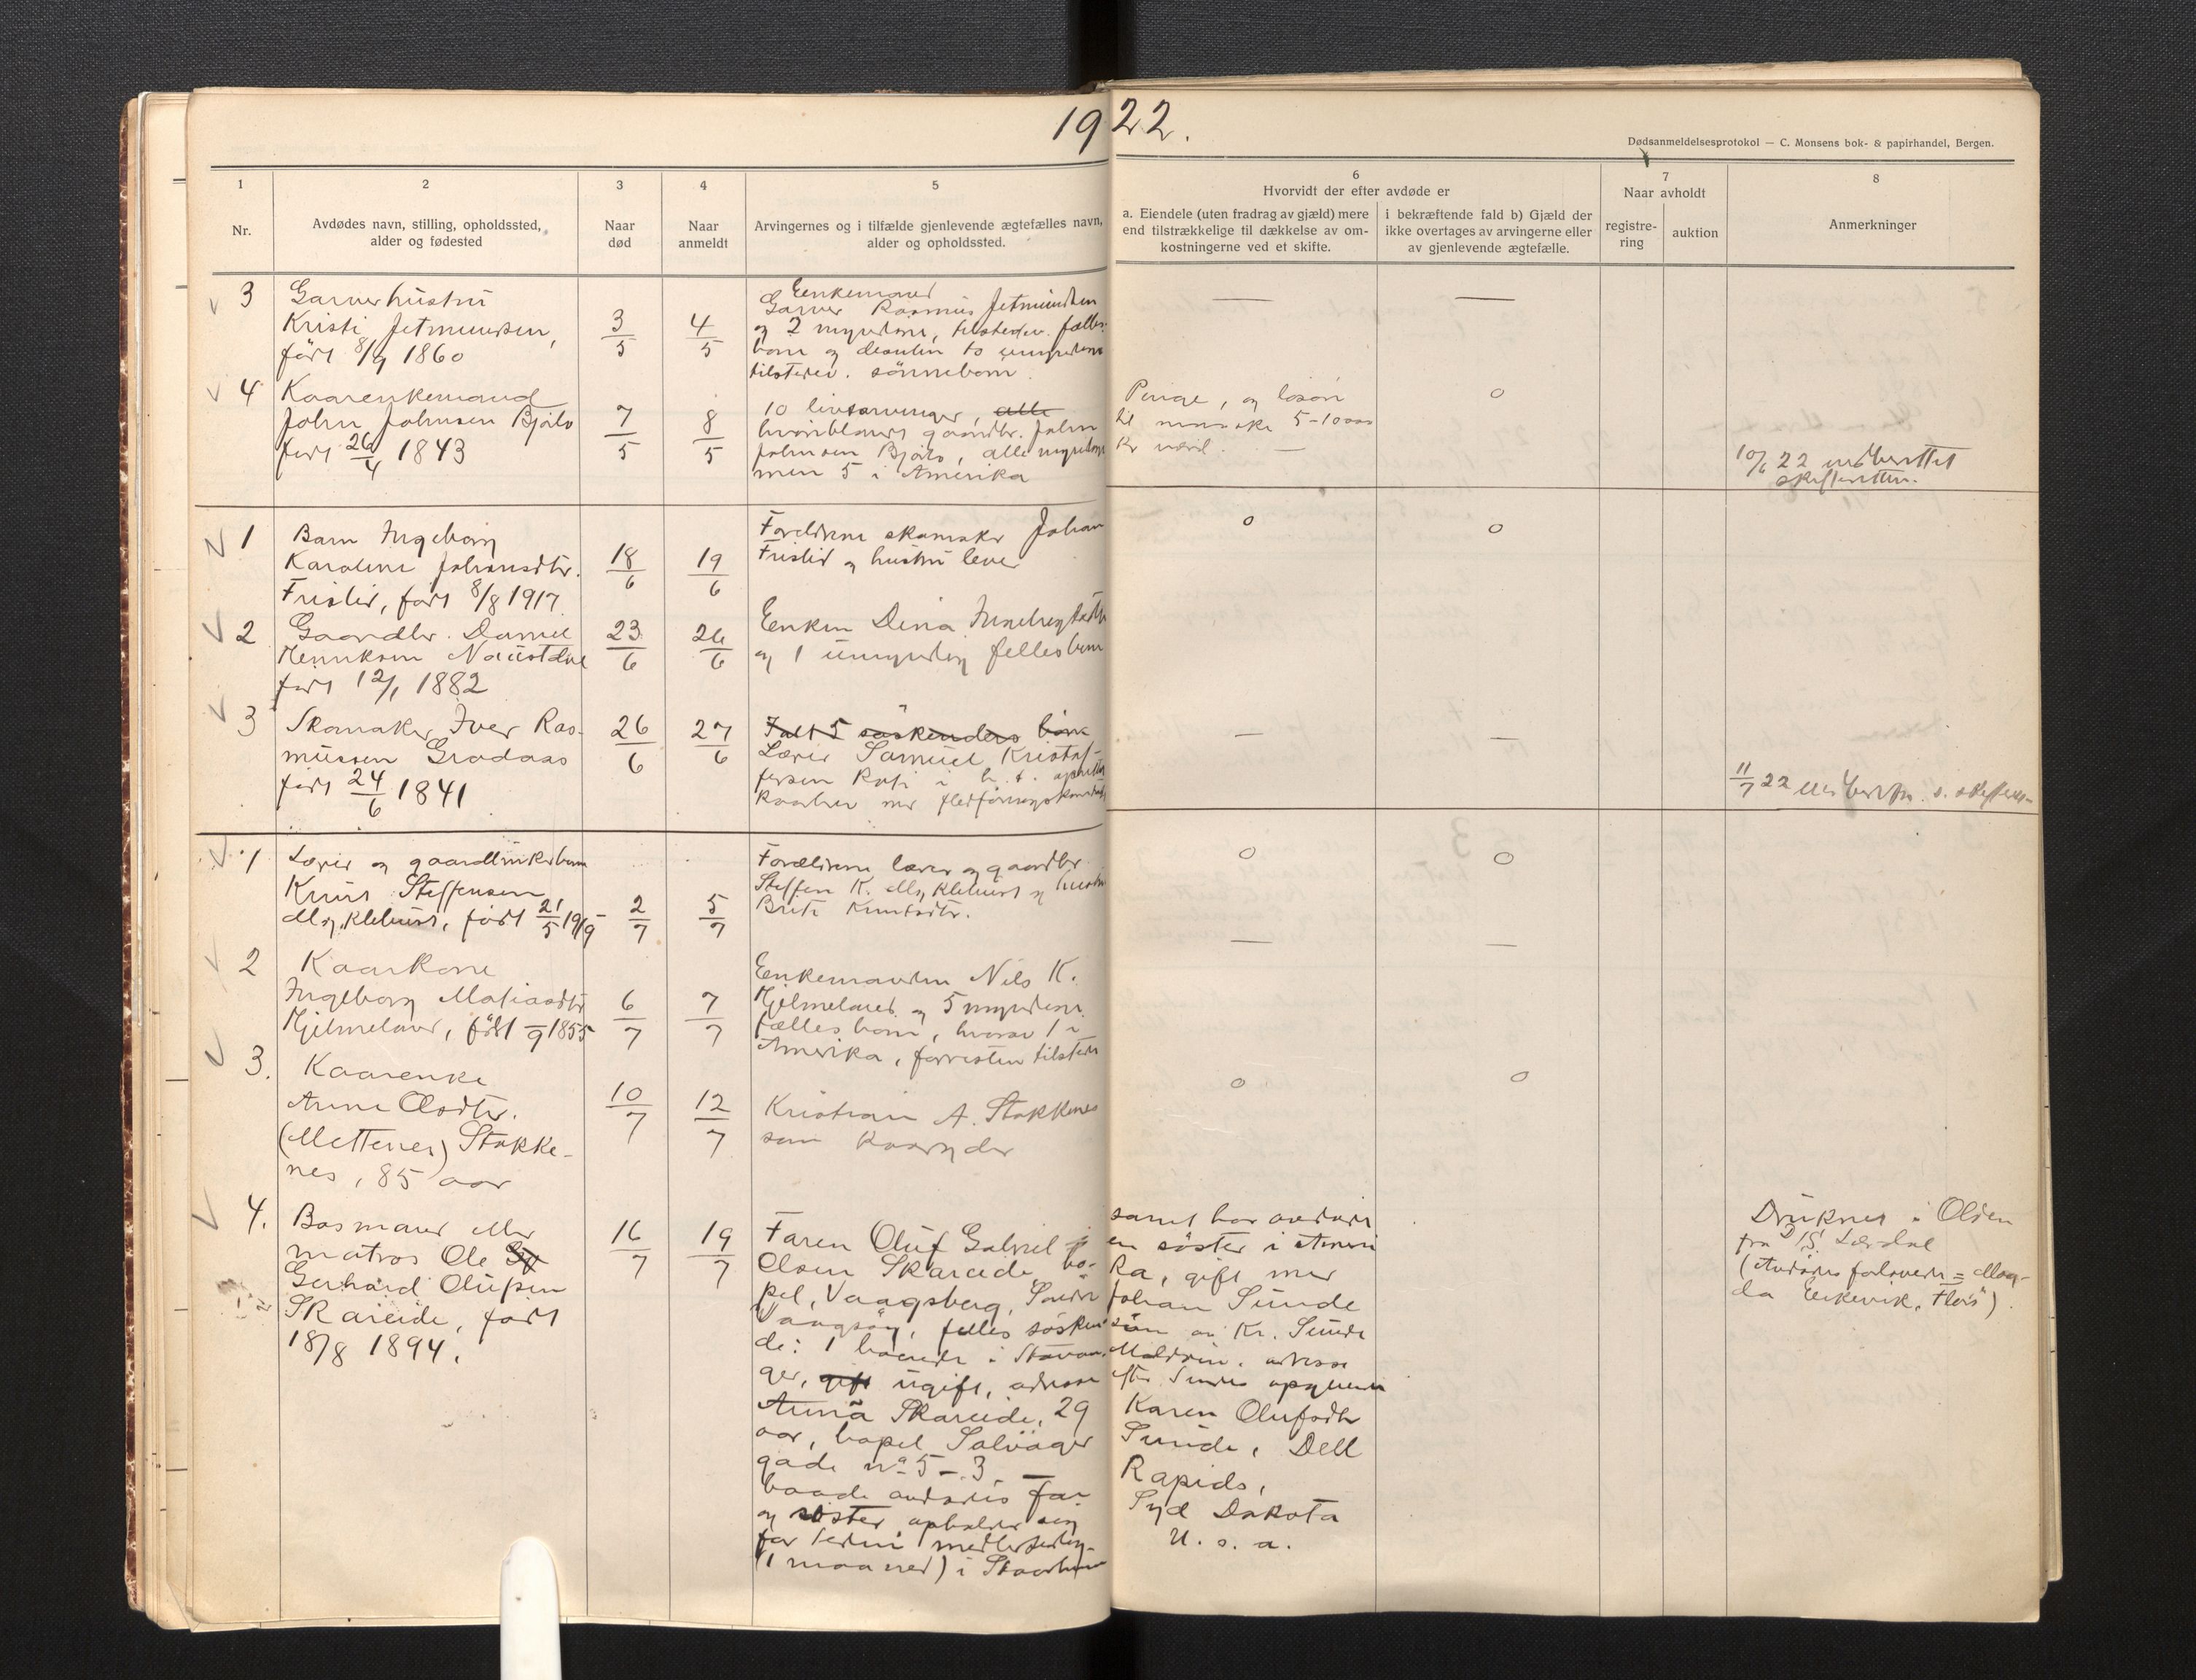 1922.
Dødsanmeldelsesprotokol — C. Monsens bok- & papirhandel, Bergen.
1
2
3
4
5
6
7
8
Nr.
Avdødes navn, stilling, opholdssted,
alder og fødested
Naar
død
Naar
anmeldt
Arvingernes og i tilfælde gjenlevende ægtefælles navn,
alder og opholdssted.
Hvorvidt der efter avdøde er
a. Eiendele (uten fradrag av gjæld) mere
end tilstrækkelige til dækkelse av om-
kostningerne ved et skifte.
i bekræftende fald b) Gjæld der
ikke overtages av arvingerne eller
av gjenlevende ægtefælle.
Naar avholdt
registre-
ring
auktion
Anmerkninger
3
Garverhustru
Kristi Jetmundsen,
født 8/9 1860
3/5
4/5
Enkemand
Garver Rasmus Jetmundsen
og 2 myndige, tilstedev. fælles-
barn og desuten to
tilstedev. sønnebarn.
—
—
4
Kaarenkemand
John Johnsen Bjørlo
født 26/4 1843
7/5
8/5
10 livsarvinger, alle
hvoriblandt gaardbr. John
Johnsen Bjørlo, alle myndige
men 5 i Amerika
Penge, og løsøre
til 5-10000
kr værd. —
0
10/6 22 indberettet
skifteretten.
1
Barn Ingeborg
Karoline Johansdtr.
Frislid, født 8/8 1917
18/6
19/6
Forældrene skomaker Johan
Frislid og hustru lever
0
0
2
Gaardbr. Daniel
Henriksen Naustdal
født 12/1 1882
23/6
26/6
Enken Dina
og 1 umyndig fellesbarn
3
Skomaker Iver Ras-
mussen Grodaas
født 24/6 1841
26/6
27/6
Ialt 5 søskendes barn
Lærer Samuel Kristof-
fersen
—
—
11/7 22
1
Lærer og gaardbrukerbarn
Knut Steffensen
Myklebust, født 21/5 1919
2/7
5/7
Forældrene lærer og gaardbr.
Steffen K. Myklebust og hustru
Brite Knutsdtr.
0
0
2
Kaarkone
Ingeborg Matiasdtr
Hjelmeland, født –/9 1855
6/7
7/7
Enkemanden Nils K.
Hjelmeland og 5 myndige
fælles barn, hvorav 1 i
Amerika, forresten tilstede
—
—
3.
Kaarenke
Anne Olsdtr.
(Mettenes) Stokke-
nes, 85 aar
10/7
12/7
Kristian A. Stokkenes
som kaaryder
0
0
4.
Basmand eller
matros Ole
Gerhard Olufsen
Skareide, født
18/8 1894.
16/7
19/7
Faren Oluf Gabriel
Olsen Skareide, bo-
pel, Vaagsberg, Søndre
Vaagsøy, felles søsken-
de: 1 boende i Stavan-
ger, gift ugift, adresse
Anna Skareide, 29
aar, bopel Salvager
gade no 5 – 3. —
baade avdødes far
og søster opholder seg
for tiden midlertidig
(1 maaned) i
samt har avdøde
en søster i Ameri
ka, gift med
Johan Sunde
søn av Kr. Sunde
Maldøen. adresse
efter Sundes opgivende
Karen Olufsdtr
Sunde, Dell
Rapids,
Syd Dakota
U. S. A.
Druknet i Olden
fra D/S Lærdal
(Avdødes forlovede = Mag-
da Eikevik, Florø).